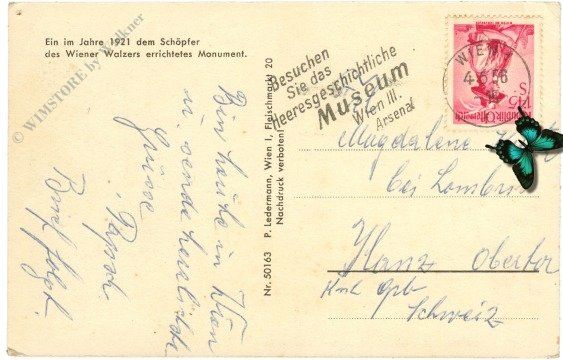 Ein im Jahre 1921 dem Schöpfer
des Wiener Walzers errichtetes Monument.
© WIMSTORE by Wolkner
Bin heute in Wien
u. sende herzliche
Grüsse
Brief folgt.
Nr. 50163 P. Ledermann, Wien 1, Fleischmarkt 20
Nachdruck verboten!
Besuchen
Sie das
Heeresgeschichtliche
Museum
Wien III.
Arsenal
WIEN
4.6.56
1.45 S
Republik Österreich
Magdalena
bei
Ilanz Oberтor
Schweiz